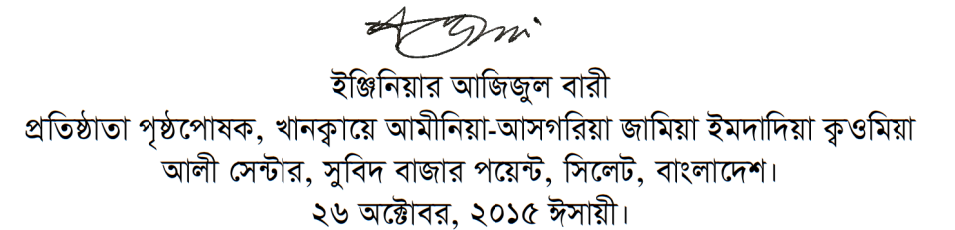 ইঞ্জিনিয়ার আজিজুল বারী
প্রতিষ্ঠাতা পৃষ্ঠপোষক, খানক্বায়ে আমীনিয়া-আসগরিয়া জামিয়া ইমদাদিয়া ক্বওমিয়া
আলী সেন্টার, সুবিদ বাজার পয়েন্ট, সিলেট, বাংলাদেশ।
২৬ অক্টোবর, ২০১৫ ঈসায়ী।